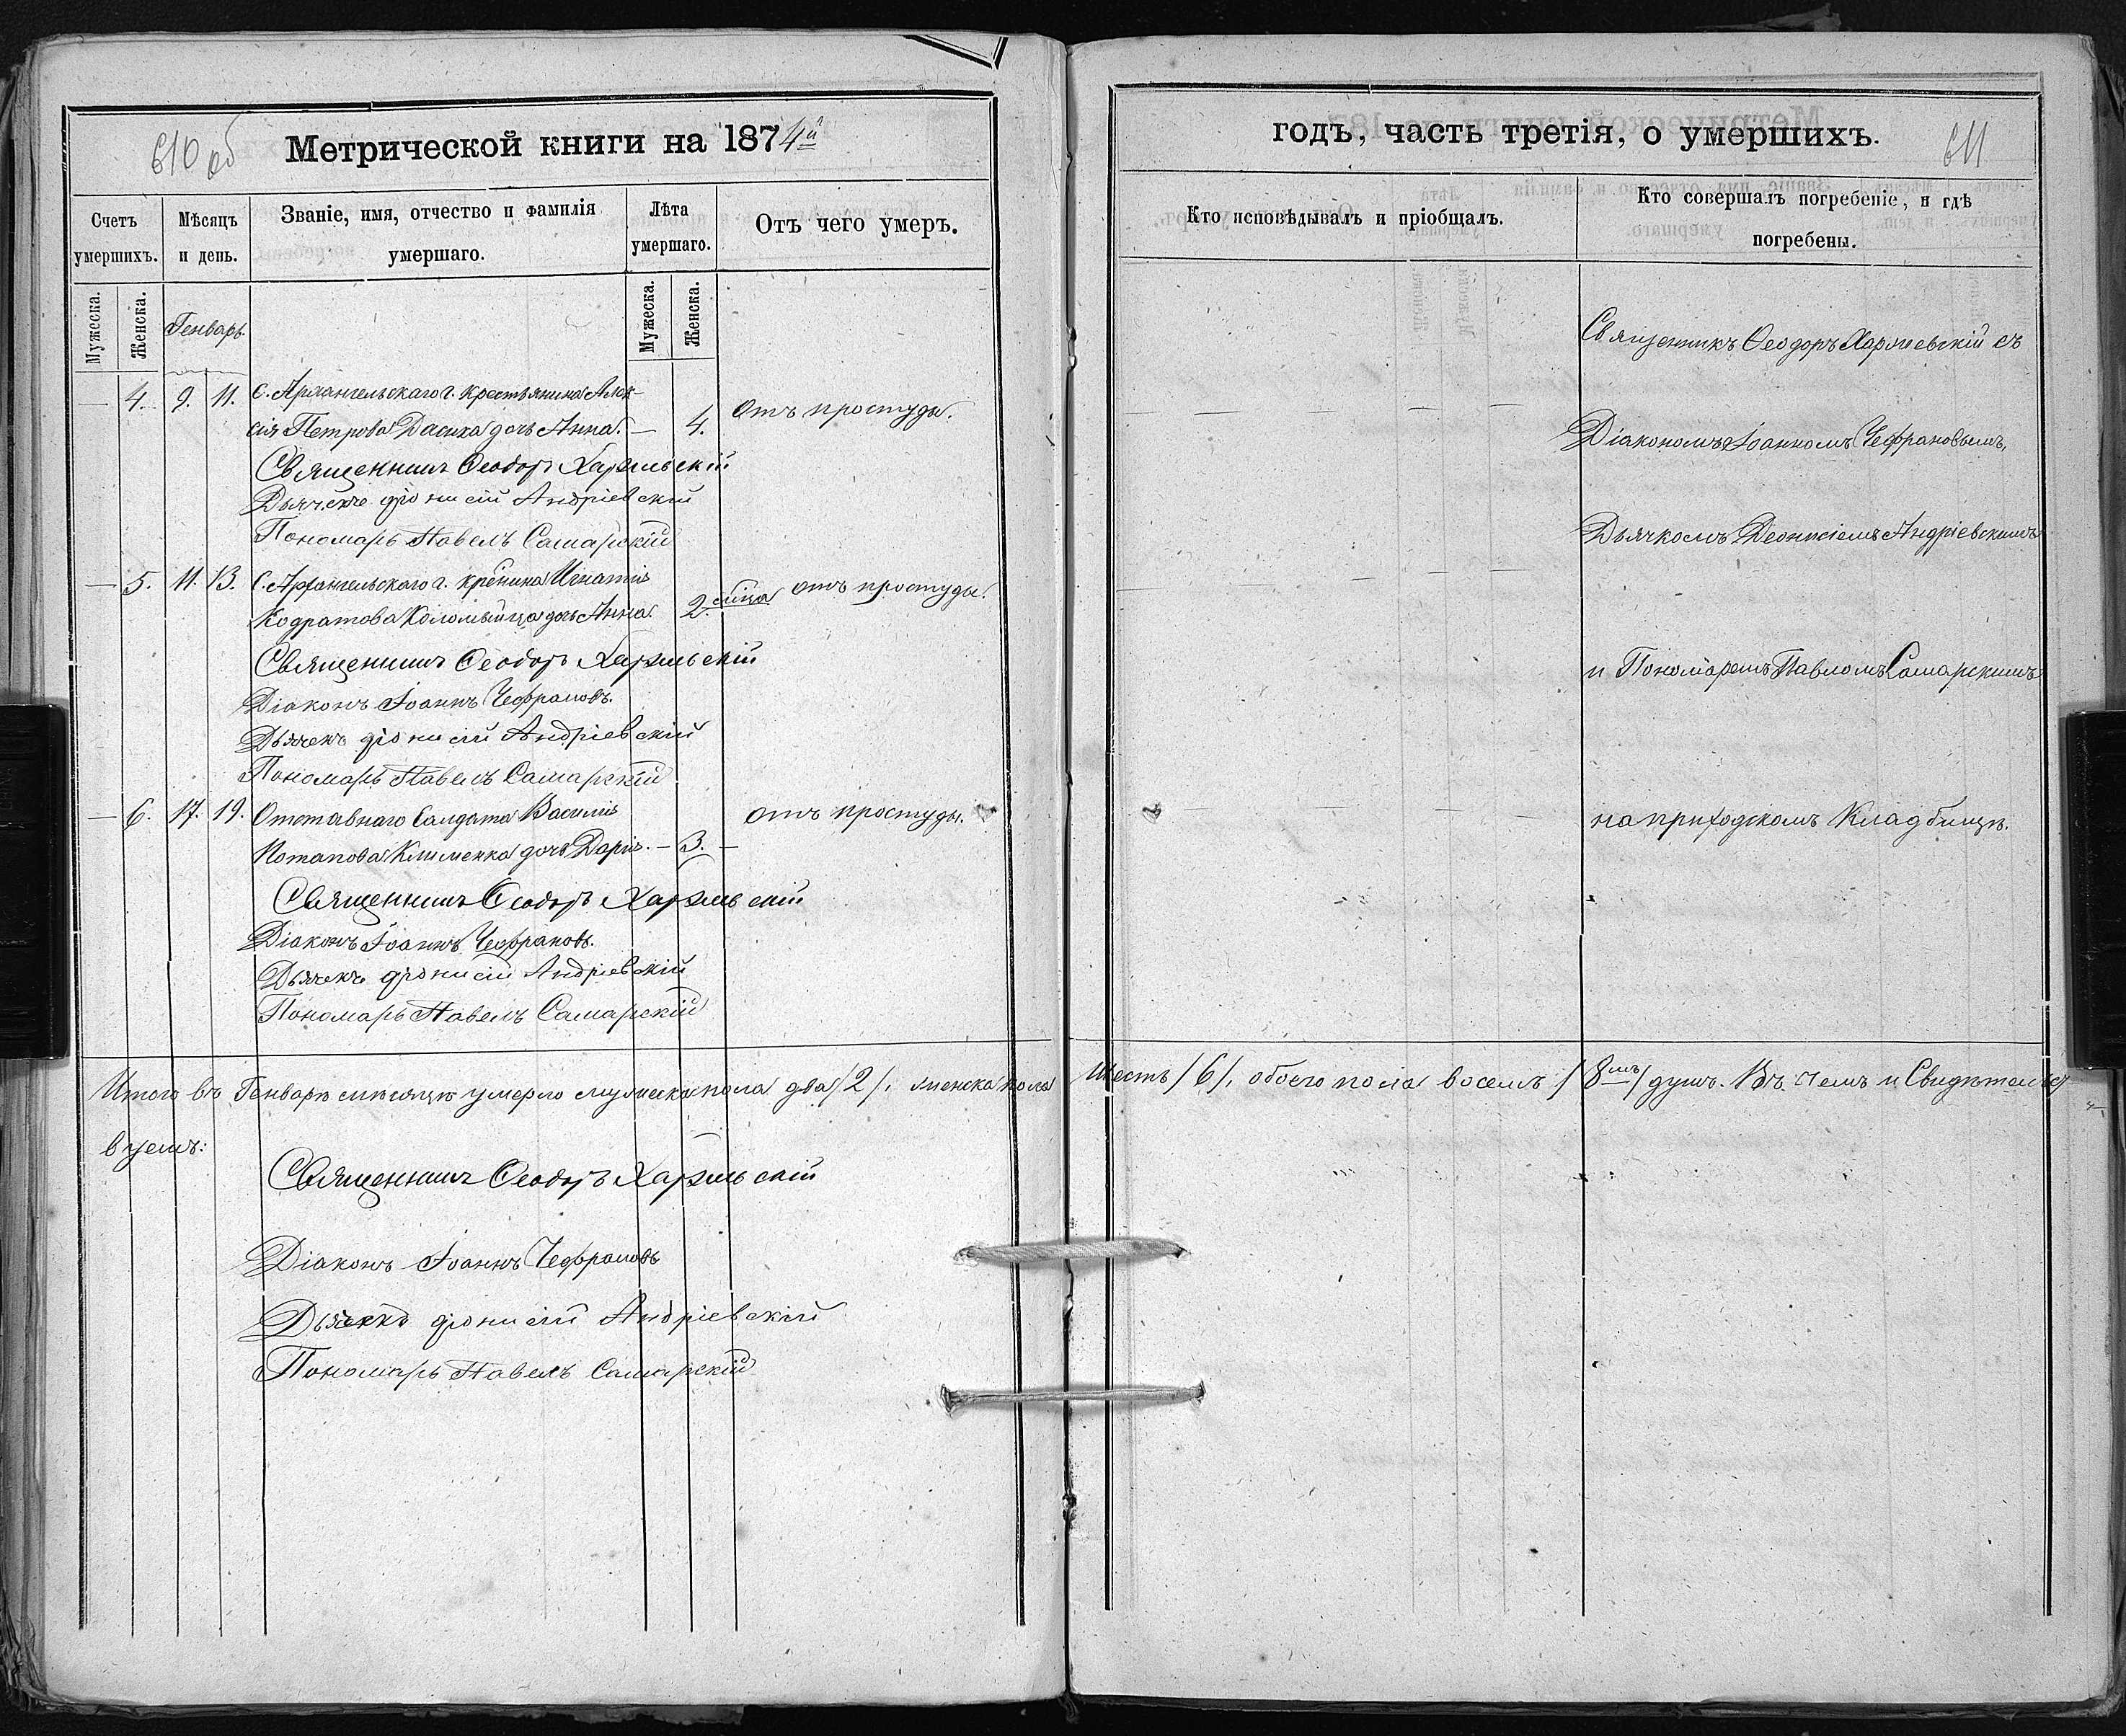 610 об
Метрической книги на 1874й
Счетъ умершихъ.
Мѣсяцъ и день.
Званіе, имя, отчество и фамилія умершаго.
Лѣта умершаго.
Отъ чего умеръ.
Мужеска.
Женска.
Генварь.
Мужеска.
Женска.
— 4. 9. 11. С. Архангельскаго г. крестьянина Алек-
сія Петрова Дасика дочь Анна. — 4. Отъ простуды.
Священникъ Ѳеодоръ
Дьячекъ Діонисій Андріевскій
Пономарь Павелъ Самарскій
— 5. 11. 13. С. Архангельскаго г. кре̃нина Игнатія
Кодратова Коломыйца дочь Анна. 2. м̃ца отъ простуды.
Священникъ Ѳеодоръ
Діаконъ Іоаннъ Чефрановъ.
Дьячекъ Діонисій Андріевскій
Пономарь Павелъ Самарскій
— 6. 17. 19. Отставнаго Салдата Василія
Потапова Клименка дочь Дарія. — 3. — отъ простуды.
Священникъ Ѳеодоръ
Діаконъ Іоаннъ Чефрановъ.
Дьячекъ Діонисій Андріевскій
Пономарь Павелъ Самарскій
Итого въ Генварѣ мѣсяцѣ умерло мужеска пола два /2/. женска пола
вуемъ:
Священникъ Ѳеодоръ
Діаконъ Іоаннъ Чефрановъ
Дьячекъ Діонисій Андріевскій
Пономарь Павелъ Самарскій
годъ, часть третія, о умершихъ.
611
Кто исповѣдывалъ и пріобщалъ.
Кто совершалъ погребеніе, и гдѣ погребены.
Священникъ Ѳеодоръ съ
Діакономъ Іоанномъ Чефрановымъ,
Дьячкомъ Деонисіемъ Андріевскимъ
и Пономаремъ Павломъ Самарскимъ
на приходскомъ Кладбищѣ.
шесть /6/. обоего пола восемь /8мь/ душъ. Въ чемъ и Свидѣтельст